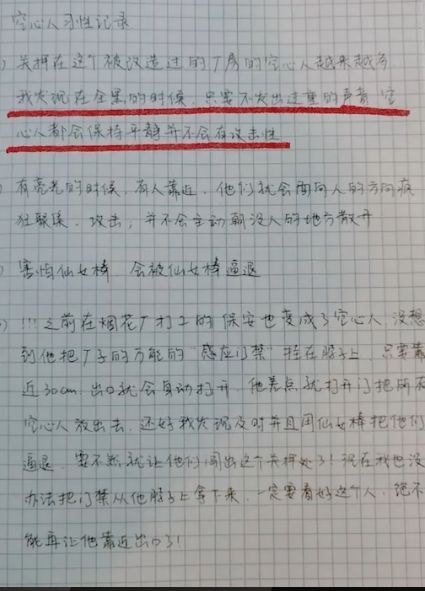 空心人习性记录
) 关押在这个被改造过的厂房的空心人越来越多
我发现在全黑的时候,只要不发出过重的声音,空
心人都会保持平静并不会有攻击性
) 有亮光的时候,有人靠近,他们就会面向人的方向疯
狂聚集、攻击,并不会主动朝没人的地方散开
) 害怕仙女棒,会被仙女棒逼退
) !!! 之前在烟花厂打工的保安也变成了空心人,没想
到他把厂子的万能的“感应门禁”挂在脖子上,只要靠
近30cm,出口就会自动打开,他差点就打开门把所有
空心人放出去,还好我发现及时并且用仙女棒把他们
逼退,要不然就让他们闯出这个关押处了!现在我也没
办法把门禁从他脖子上拿下来,一定要看好这个人,绝不
能再让他靠近出口了!